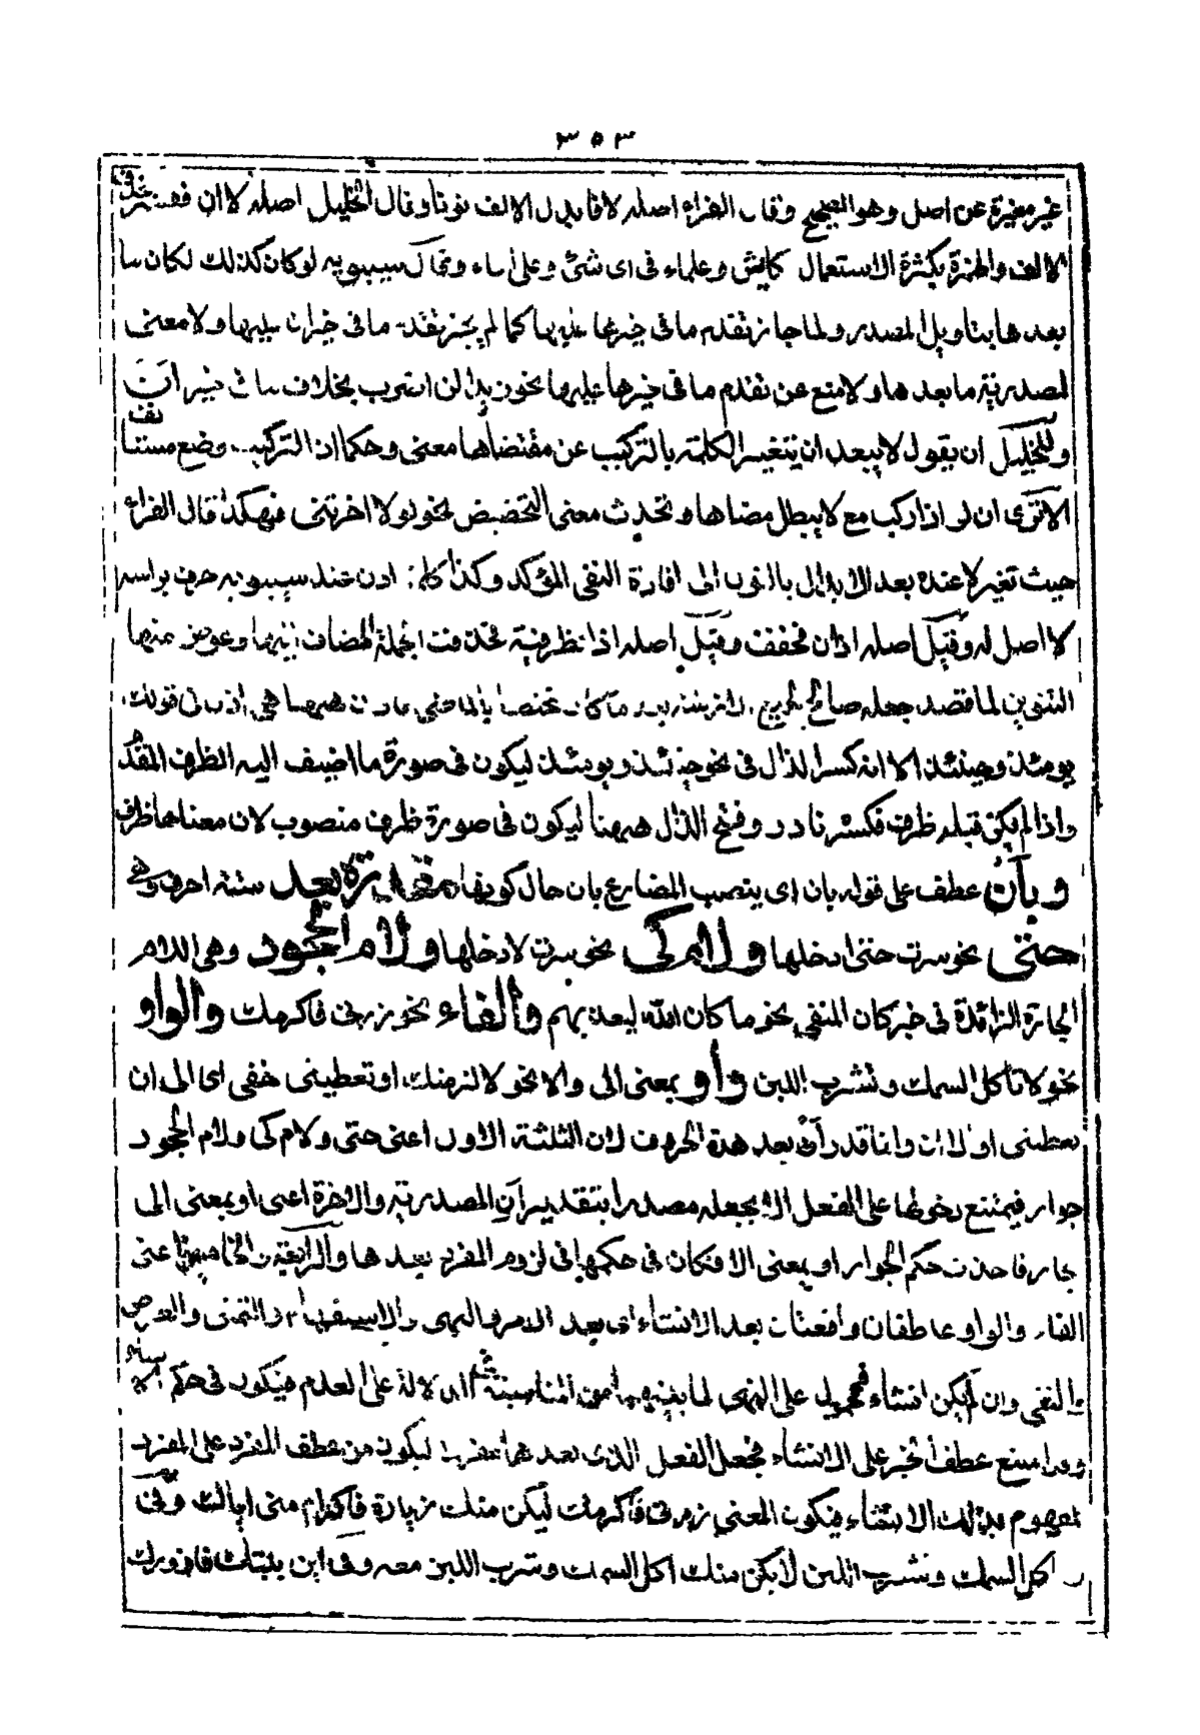 ٣٥٣
غير مغيرة عن اصل وهو الصحيح وقال الفراء اصله لا فابدل الالف نونا وقال الخليل اصله لا ان فقصر بحذف
الالف والهمزة بكثرة الاستعمال كايش وعلماء فى اى شئ وعلى الماء وقال سيبويه لو كان كذلك لكان ما
بعدها بتاويل المصدر ولما جاز تقدم ما فى خيرها عليها كما لم يجز تقدم ما فى خيران عليها ولا معنى
لمصدرية ما بعدها ولا منع عن تقدم ما فى خيرها عليها نحو زيدا لن اضرب بخلاف سائر خير ان
وللخليل ان يقول لا يبعد ان يتغير الكلمة بالتركيب عن مقتضاها معنى وحكما اذ التركيب وضع مستانف
الا ترى ان لو اذا ركب مع لا يبطل معناها وتحدث معنى التخضيض نحو لولا اخرتنى فهكذا قال الفراء
حيث تغير لا عنده بعد الابدال بالنون الى افادة النفى المؤكد وكذا كلمة اذن عند سيبويه حرف براسه
لا اصل له وقيل اصله اذ ان فخفف وقيل اصله اذا ظرفية فحذفت الجملة المضاف اليها وعوض عنها
التنوين لما قصد جعله صالحا لجميع الازمنة بعد ما كان مختصا بالماضى
يومئذ وحينئذ الا انه كسر الذال فى نحو حينئذ ويومئذ ليكون فى صورة ما اضيف اليه الظرف المقدم
واذا لم يكن قبله ظرف فكسر نادر وفتح الذال ههنا ليكون فى صورة ظرف منصوب لان معناهما ظرف
وبأن عطف على قوله بان اى ينصب المضارع بان حال كونها مقدرة بعد ستة احرف وهى
حتى نحو سرت حتى ادخلها ولام كى نحو سرت لادخلها ولام الجحود وهى اللام
الجارة الزائدة فى خبر كان المنفى نحو ما كان الله ليعذبهم والفاء نحو زرنى فاكرمك والواو
نحو لا تاكل السمك وتشرب اللبن وأو بمعنى الى والا نحو لالزمنك او تعطينى حقى اى الى ان
تعطينى او الا ان وانما قدر أن بعد هذه الحروف لان الثلثة الاول اعنى حتى ولام كى ولام الجحود
جوار فيمتنع دخولها على الفعل الا بجعله مصدرا بتقدير ان المصدرية والاخرة اعنى او بمعنى الى
جار فاخذت حكم الجوار او بمعنى الا فكان فى حكمها فى لزوم المفرد بعدها والرابعة والخامسة اعنى
الفاء والواو عاطفتان واقعتان بعد الانشاء اى بعد الامر والنهى والاستفهام والتمنى والعرض
والنفى وان لم يكن انشاء فمحمول على النهى لما بينهما من المناسبة فى الدلالة على العدم فيكون فى حكم الانشاء
ولما امتنع عطف الخبر على الانشاء فجعل الفعل الذى بعدهما مفردا ليكون من عطف المفرد على المفرد
المفهوم من ذلك الانشاء فيكون المعنى زرنى فاكرمك ليكن منك زيارة فاكرام منى اياك وفى
لا تاكل السمك وتشرب اللبن لا يكن منك اكل السمك وشرب اللبن معه وفى اين بيتك فازورك